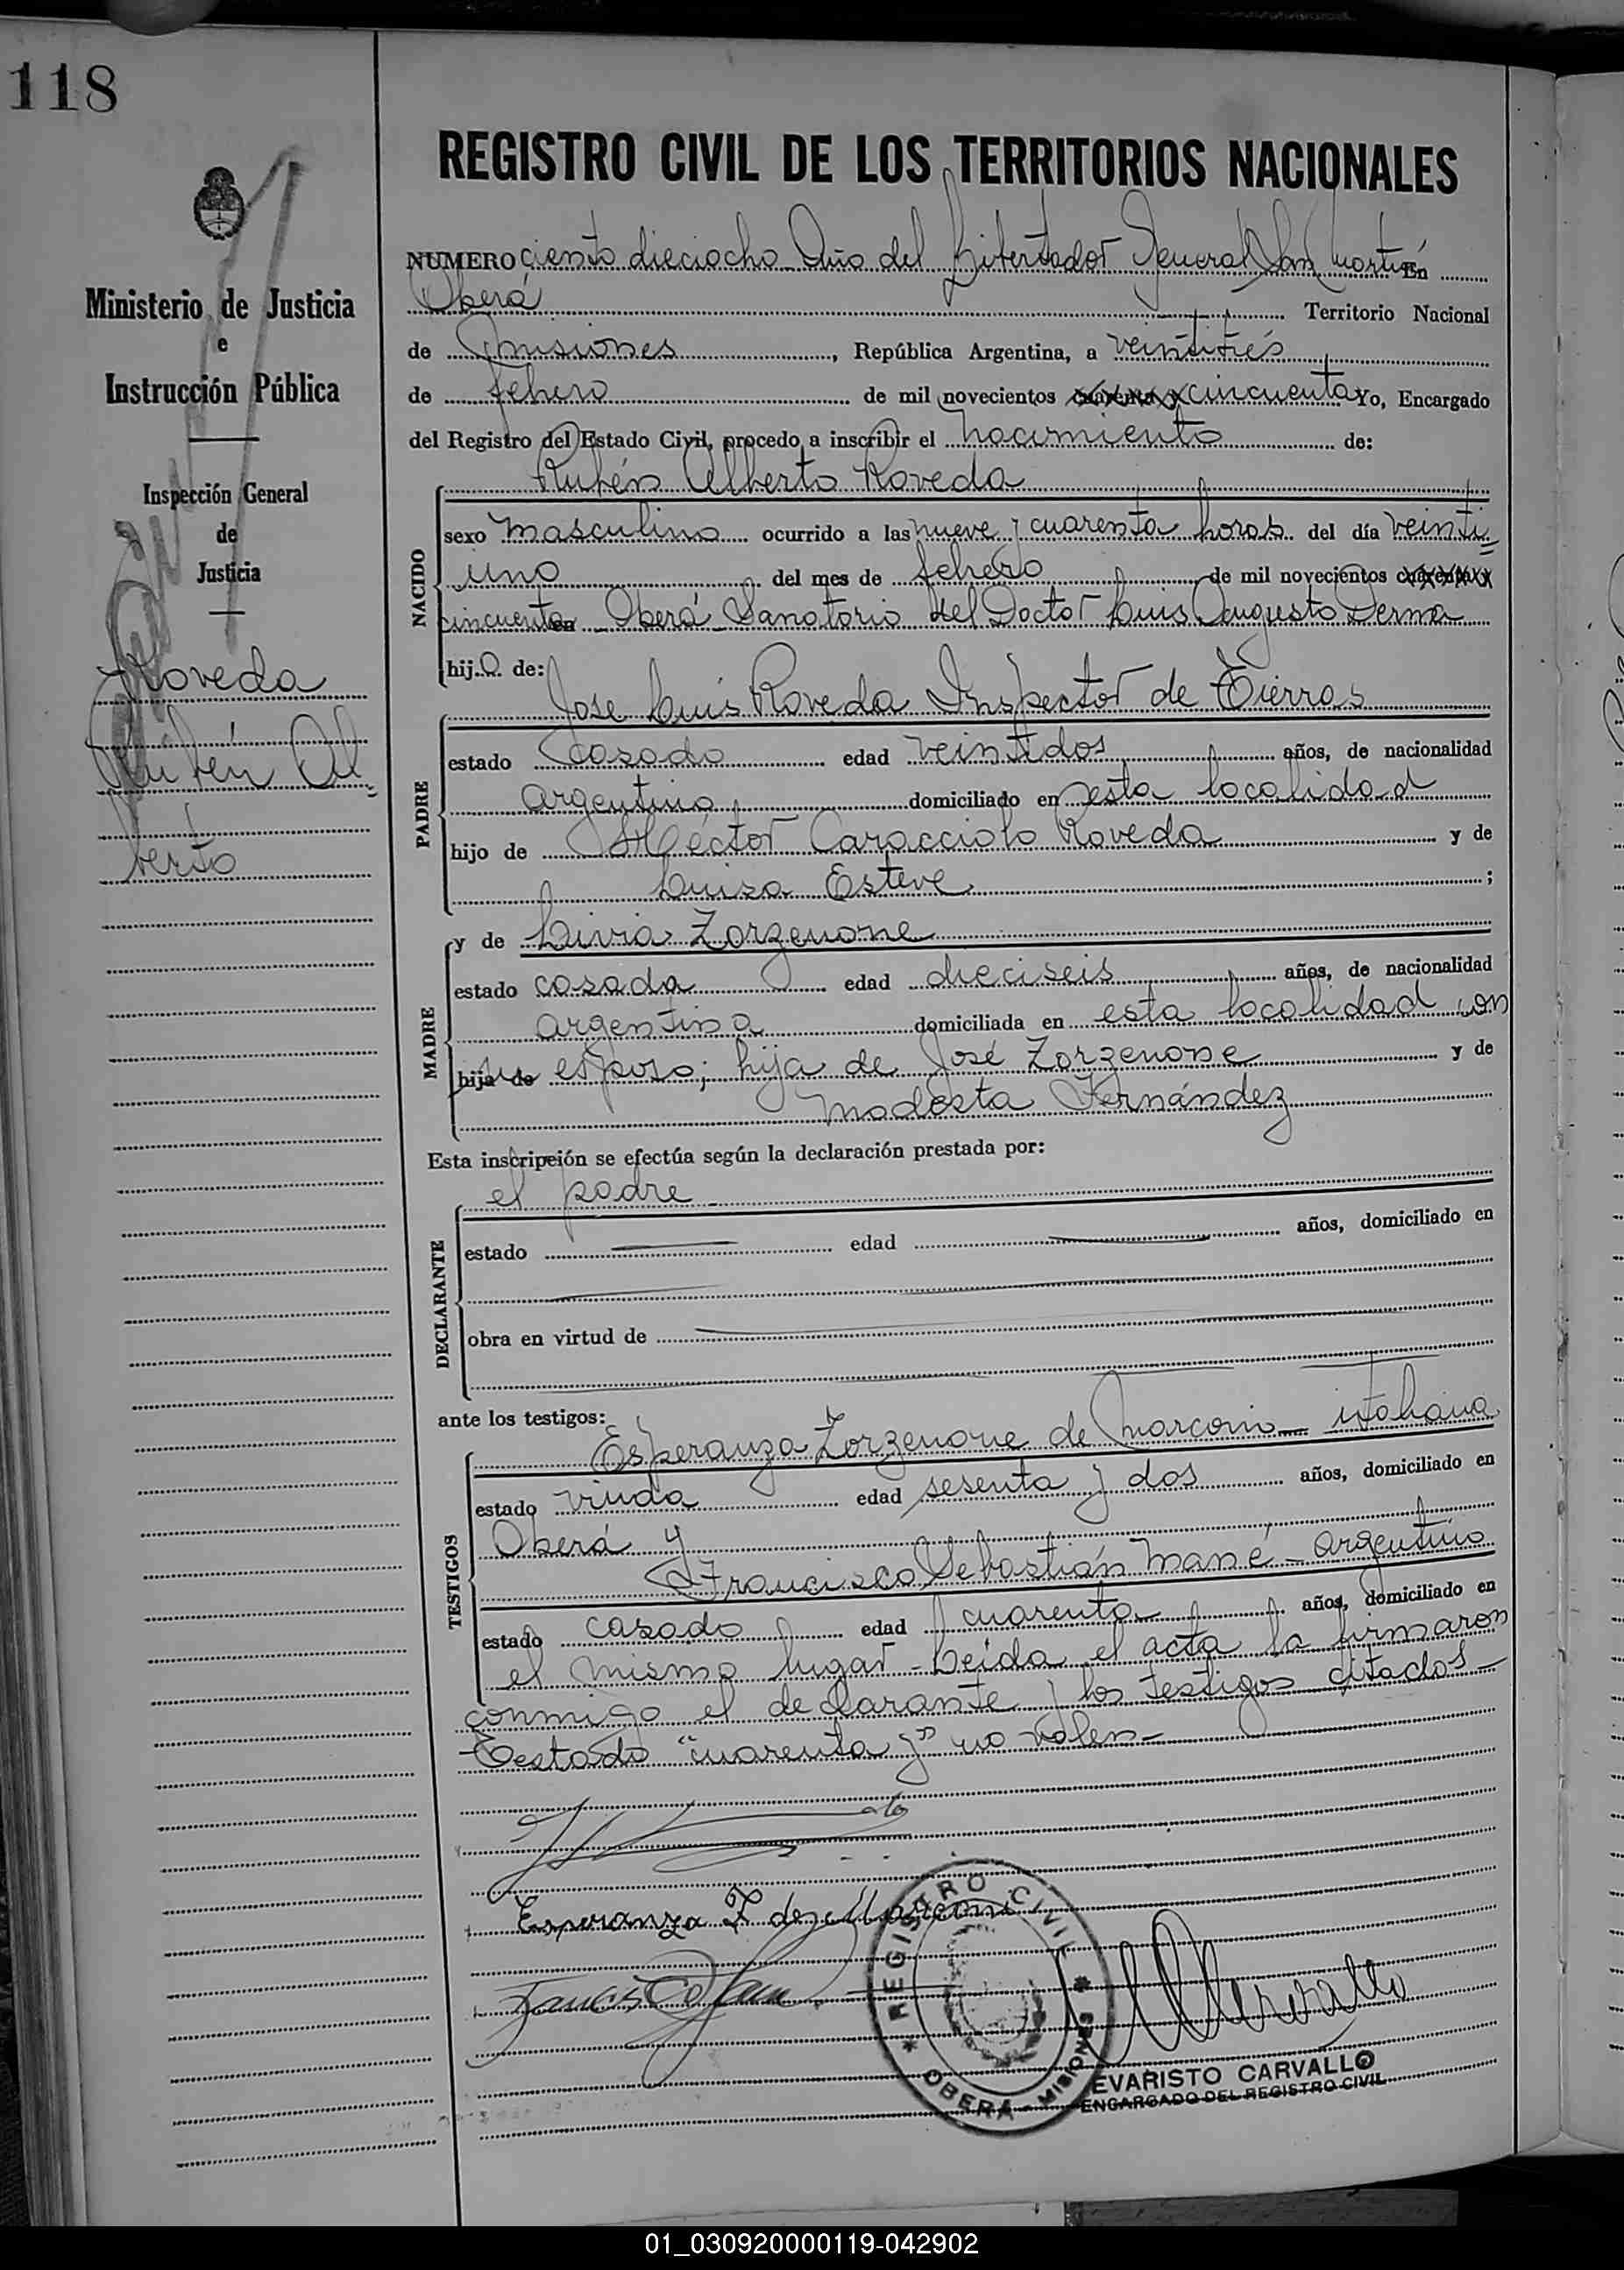 118
REGISTRO CIVIL DE LOS TERRITORIOS NACIONALES
NUMERO ciento dieciocho Año del Libertador General San Martín En
Oberá Territorio Nacional
de Misiones, República Argentina, a veintitrés
de febrero de mil novecientos cuarenta y cincuenta Yo, Encargado
del Registro del Estado Civil, procedo a inscribir el nacimiento de:
Rubén Alberto Roveda
NACIDO
sexo masculino ocurrido a las nueve y cuarenta horas del día veinti
uno del mes de febrero de mil novecientos cuarenta
cincuenta en Oberá Sanatorio del Doctor Luis Augusto Derna
hijo de:
PADRE
Jose Luis Roveda Inspector de Tierras
estado casado edad veintidos años, de nacionalidad
argentino domiciliado en esta localidad
hijo de Héctor Caracciolo Roveda y de
Luisa Esteve ;
MADRE
y de Livia Zorzenone
estado casada edad dieciseis años, de nacionalidad
argentina domiciliada en esta localidad con
hija de su esposo; hija de José Zorzenone y de
Modesta Fernández
Esta inscripción se efectúa según la declaración prestada por:
DECLARANTE
el padre
estado edad años, domiciliado en
obra en virtud de
ante los testigos:
TESTIGOS
Esperanza Zorzenone de Marconi italiana
estado viuda edad sesenta y dos años, domiciliado en
Oberá y
Francisco Sebastián Mané - argentino
estado casado edad cuarenta años, domiciliado en
el mismo lugar - Leida el acta la firmaron
conmigo el declarante y los testigos citados -
Testado "cuarenta y" no valen -
Esperanza Z de Marconi
REGISTRO CIVIL
OBERA - MISIONES
EVARISTO CARVALLO
ENCARGADO DEL REGISTRO CIVIL
Ministerio de Justicia
e
Instrucción Pública
Inspección General
de
Justicia
Roveda
Rubén Al
berto
01_030920000119-042902